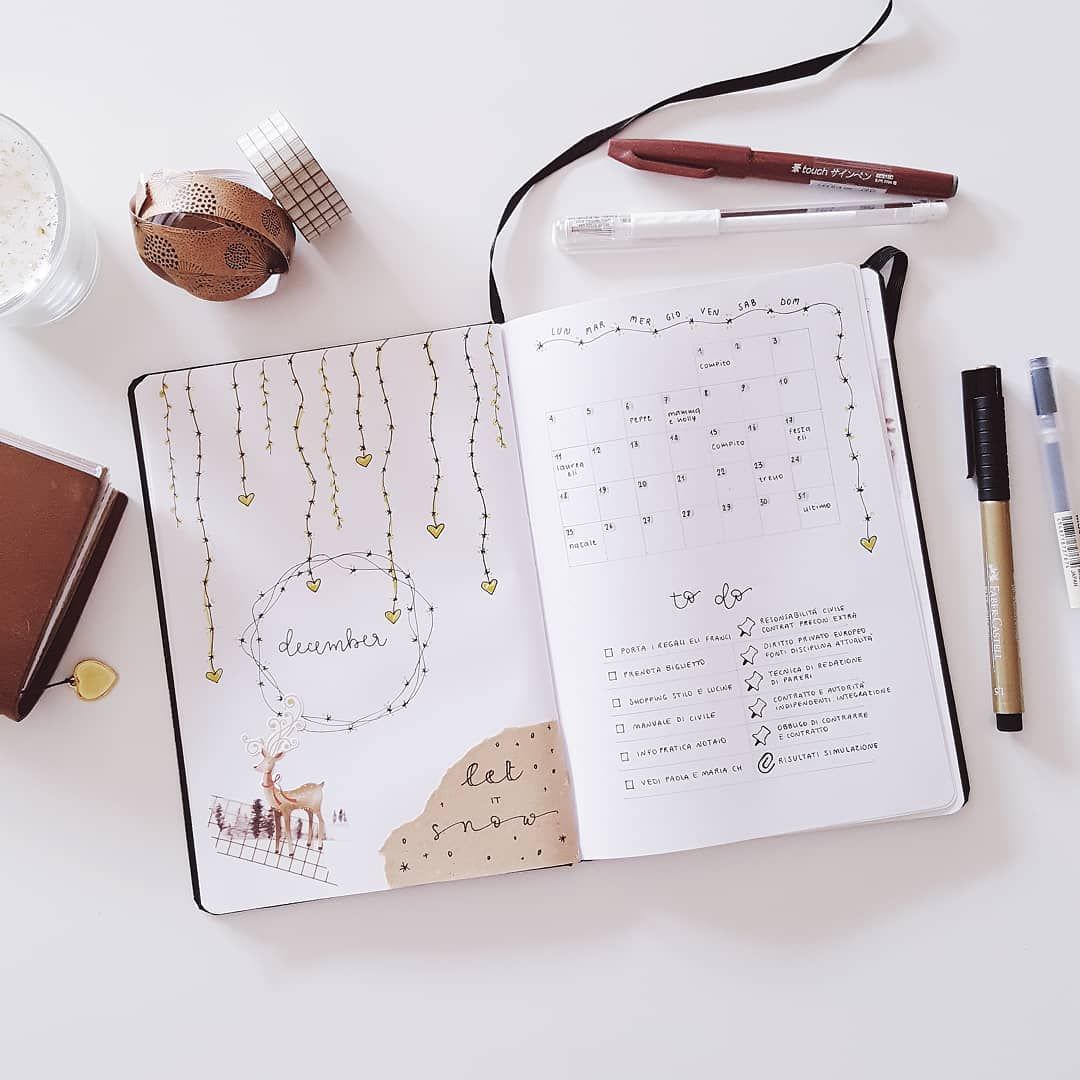 touch サインペン
LUN MAR MER GIO VEN SAB DOM
1 2 3
compito
4 5 6 7 8 9 10
peppe mamma e nolly
11 12 13 14 15 16 17
laurea eli compito festa eli
18 19 20 21 22 23 24
treno
25 26 27 28 29 30 31
natale ultimo
december
let
it
snow
to do
PORTA I REGALI ELI FRANCI
PRENOTA BIGLIETTO
SHOPPING STILO E LUCINE
MANUALE DI CIVILE
INFO PRATICA NOTAIO
VEDI PAOLA E MARIA CH
RESONSABILITÀ CIVILE
CONTRAT PRECON EXTRA
DIRITTO PRIVATO EUROPEO
FONTI DISCIPLINA ATTUALITÀ
TECNICA DI REDAZIONE
DI PARERI
CONTRATTO E AUTORITÀ
INDIPENDENTI. INTEGRAZIONE
OBBLIGO DI CONTRARRE
E CONTRATTO
RISULTATI SIMULAZIONE
FABER-CASTELL
1.5